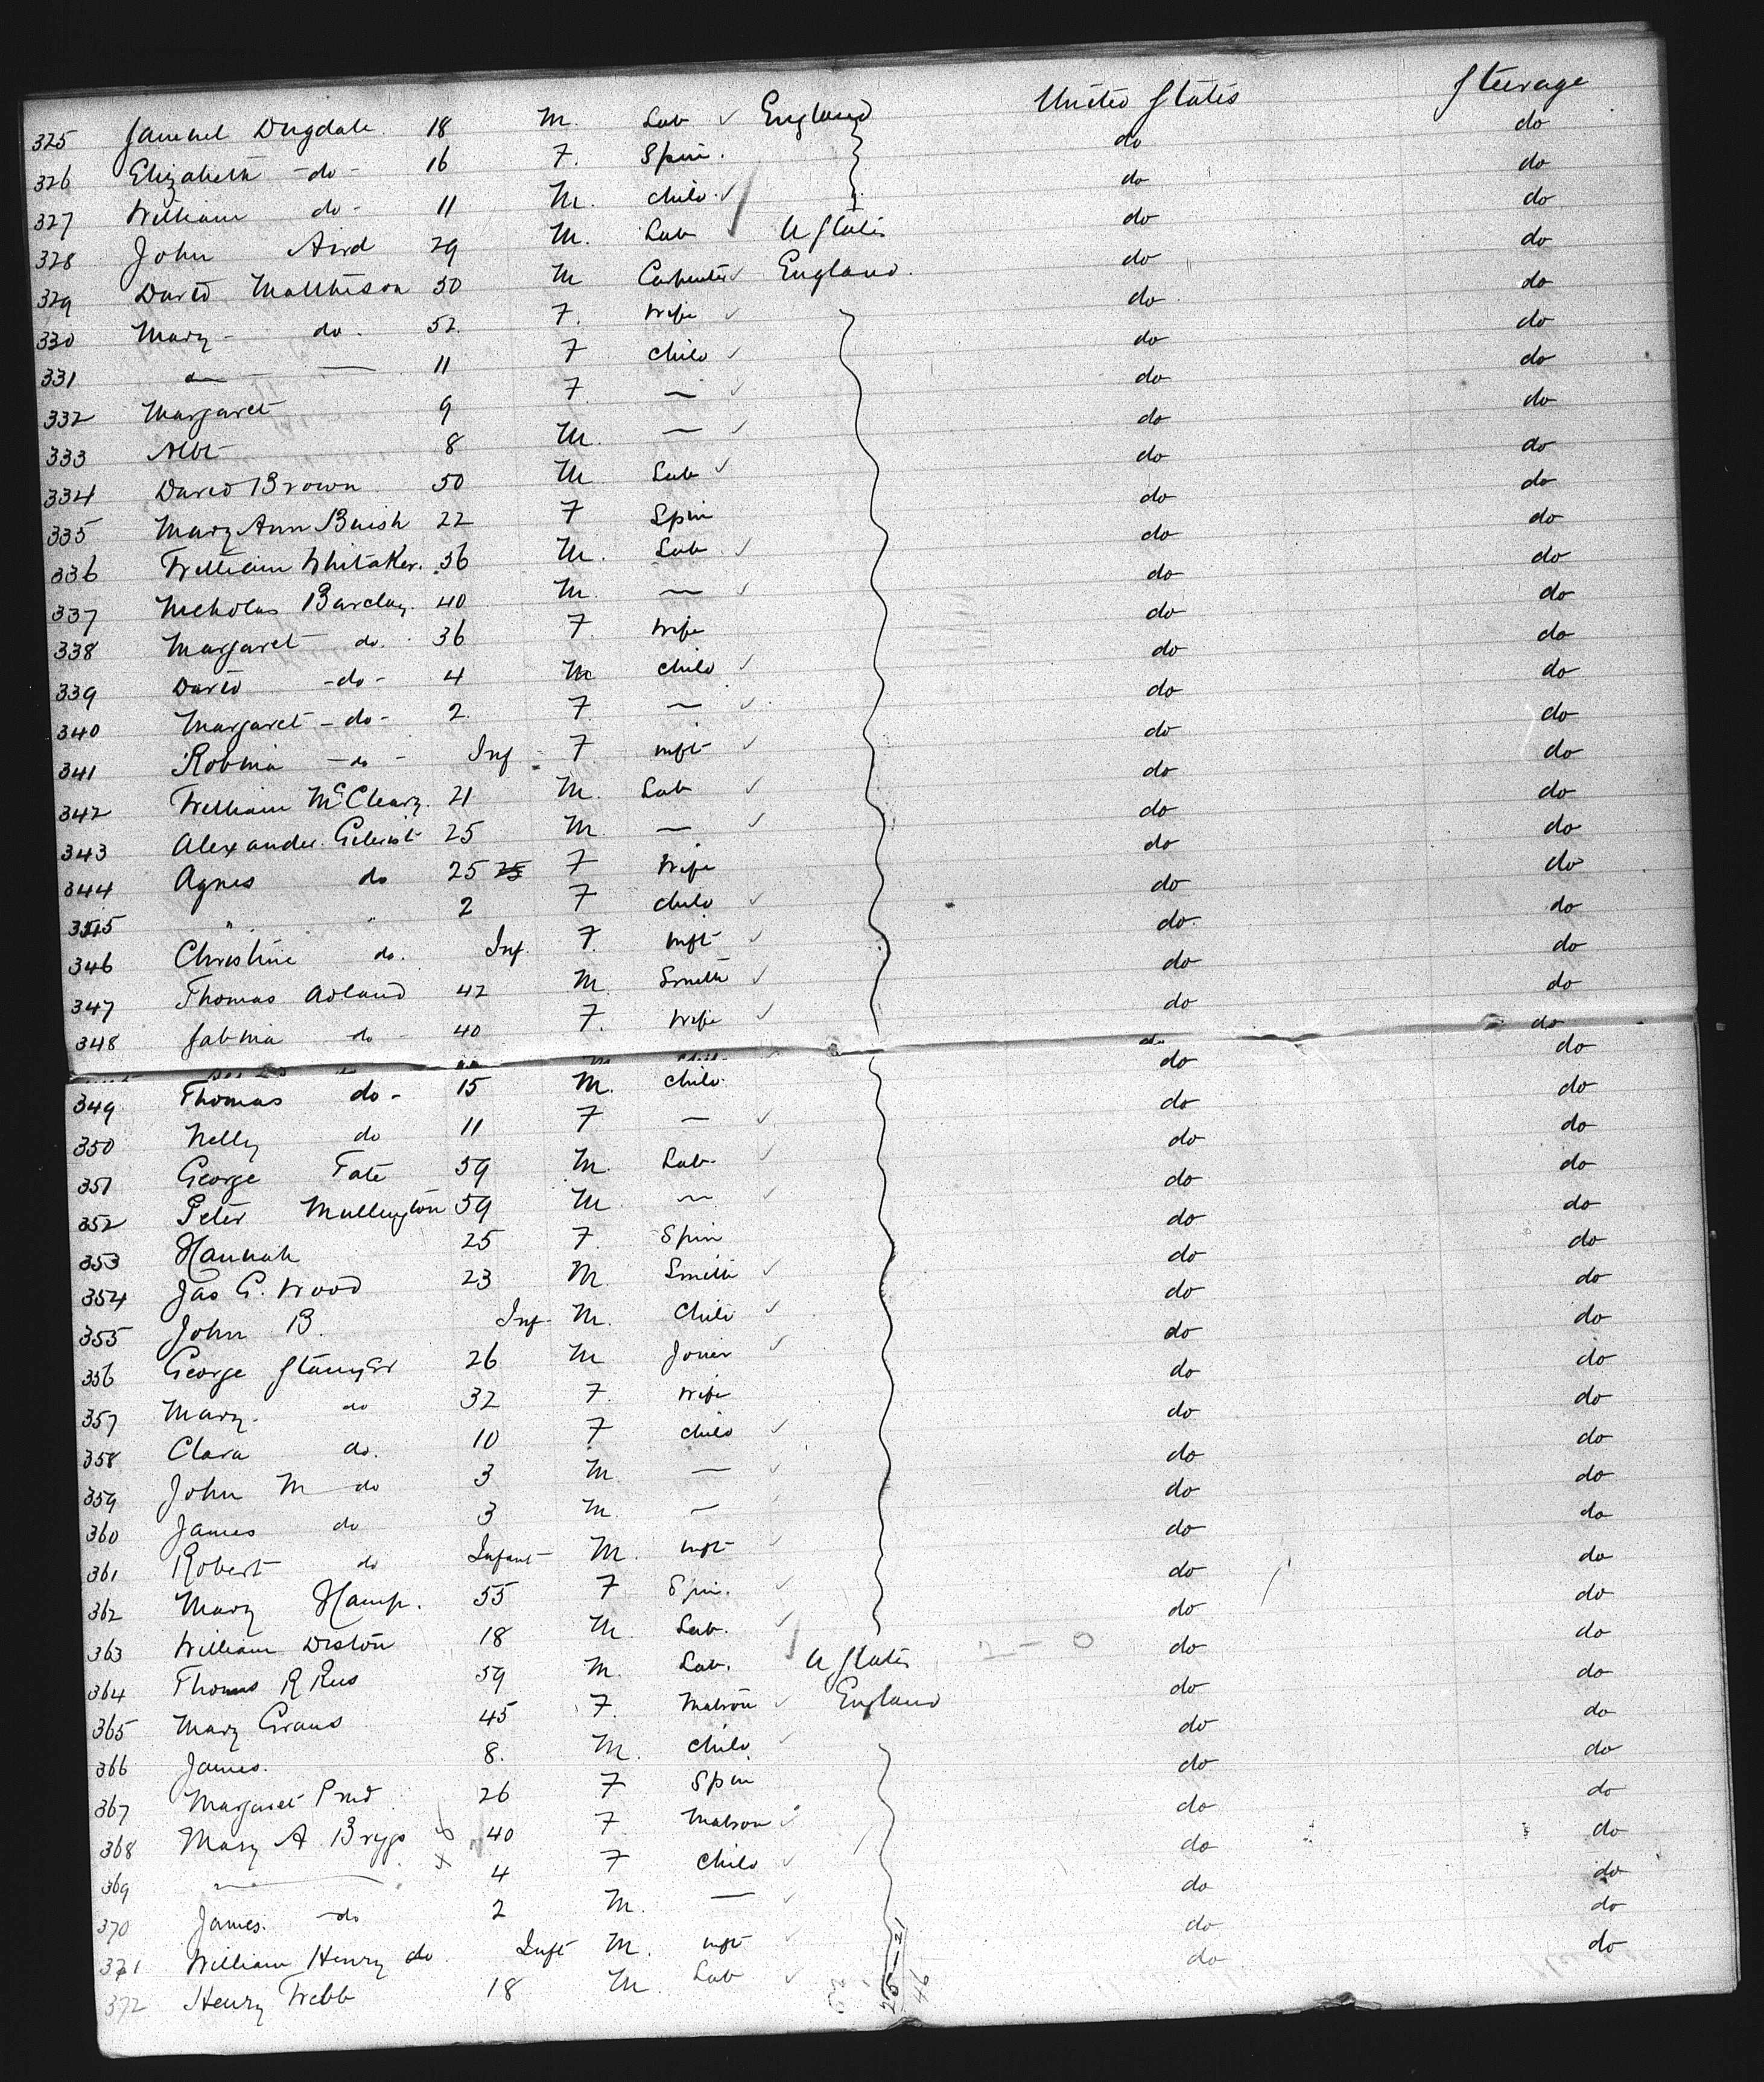 325 Samuel Dugdale. 18 M. Lab England United States Steerage
326 Elizabeth - do - 16 F. Spin. do do
327 William do - 11 M. Child. do do
328 John Aird 29 M. Lab U States do do
329 David Matthison 50 M Carpenter England. do do
330 Mary - do. 52. F. Wife do do
331 do — 11 F Child do do
332 Margaret 9 F. — do do
333 Albt 8 M. — do do
334 David Brown 50 M Lab do do
335 Mary Ann Buish 22 F Spin do do
336 William Whitaker. 36 M. Lab. do do
337 Nicholas Barclay. 40 M. — do do
338 Margaret do. 36 F. Wife do do
339 David - do - 4 M Child do do
340 Margaret - do - 2. F. — do do
341 Robina - do - Inf F. inft do do
342 William McCleary. 21 M. Lab do do
343 Alexander Gilcrist 25 M. — do do
344 Agnes do 25 25 F Wife do do
345 " " 2 F Child do do
346 Christine do. Inf. F. inft do do
347 Thomas Adland 42 M. Smith do do
348 Sabina do 40 F. Wife do do
do do
349 Thomas do - 15 M. Child. do do
350 Nelly do 11 F — do do
351 George Tate 59 M. Lab. do do
352 Peter Mullington 59 M. — do do
353 Hannah 25 F. Spin do do
354 Jas G. Wood 23 M. Smith do do
355 John B. Inf. M. Child do do
356 George 26 M Joiner do do
357 Mary. do 32 F. Wife do do
358 Clara do. 10 F Child do do
359 John M do 3 M. — do do
360 James do 3 M. — do do
361 Robert do Infant M. inft do do
362 Mary Hamp. 55 F Spin. do do
363 William Diston 18 M. Lab. do do
364 Thomas R Rees 59 M. Lab. U States do do
365 Mary Evans 45 F. Matron England do do
366 James. 8. M. Child do do
367 Margaret 26 F Spin do do
368 Mary A Brygs x 40 F. Matron do do
369 — x 4 F Child do do
370 James. do 2 M. — do do
371 William Henry do Inft M. inft do do
372 Henry Webb 18 M. Lab do do